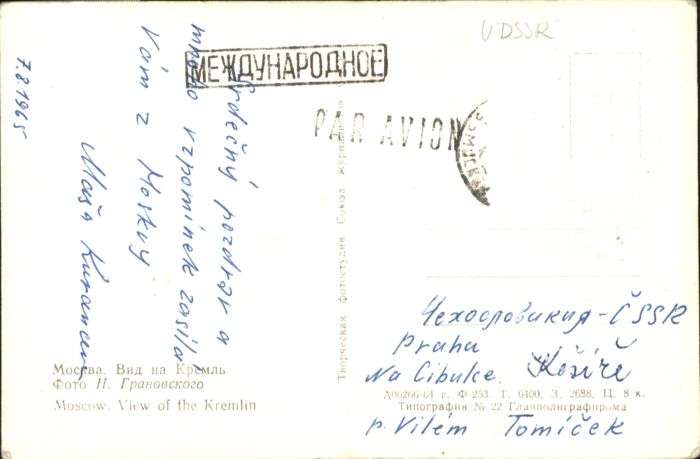 UDSSR
МЕЖДУНАРОДНОЕ
PAR AVION
7.8.1965
Srdečný pozdrav a
mnoho vzpomínek zasílá
Vám z Moskvy
Máša
Творческая фотостудия Союза журналистов
Москва. Вид на Кремль
Фото Н. Грановского
Moscow. View of the Kremlin
Чехословикия - ČSSR
Praha
Na Cibulce. Košíře
А06266-64 г. Ф 253 Т. 6400, З. 2688, Ц. 8 к.
Типография № 22 Главполиграфпрома
p. Vilém Tomíček